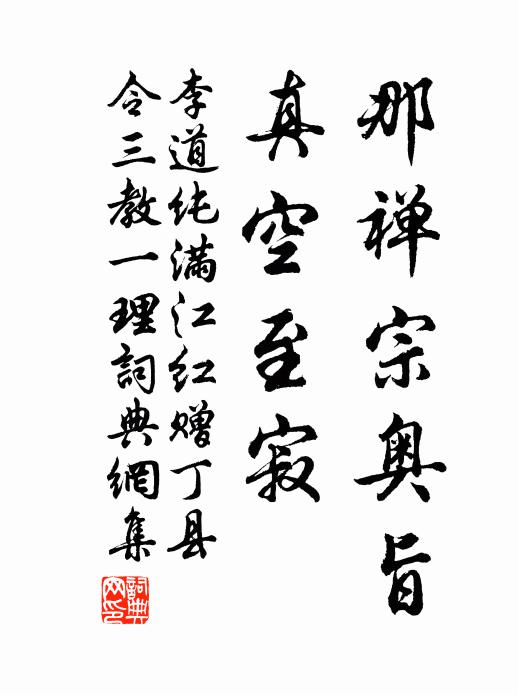 那禅宗奥旨
真空至寂
李道纯滿江红赠丁县
令三教一理詞典網集
詞典
网印